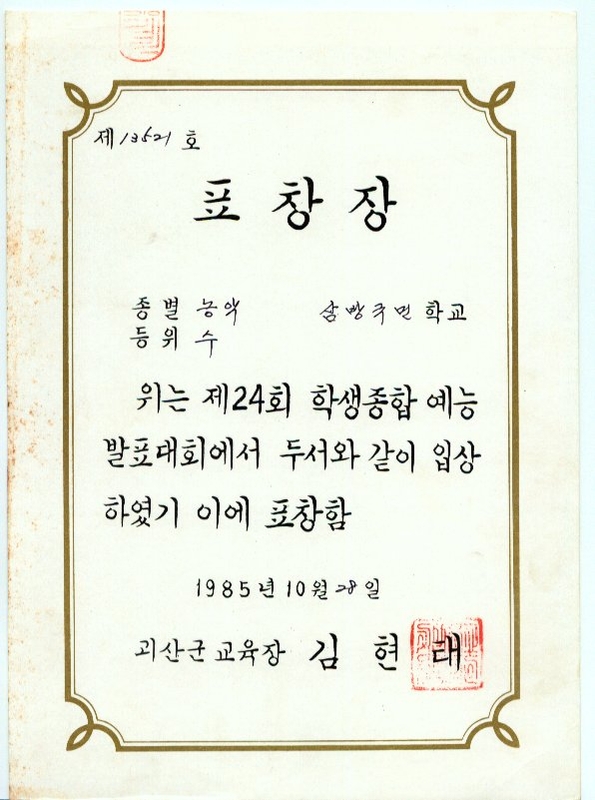 제13521호
표창장
종별 농악 삼방국민학교
등위 수
위는 제24회 학생종합 예능
발표대회에서 두서와 같이 입상
하였기 이에 표창함
1985년 10월 28일
괴산군교육장 김현태